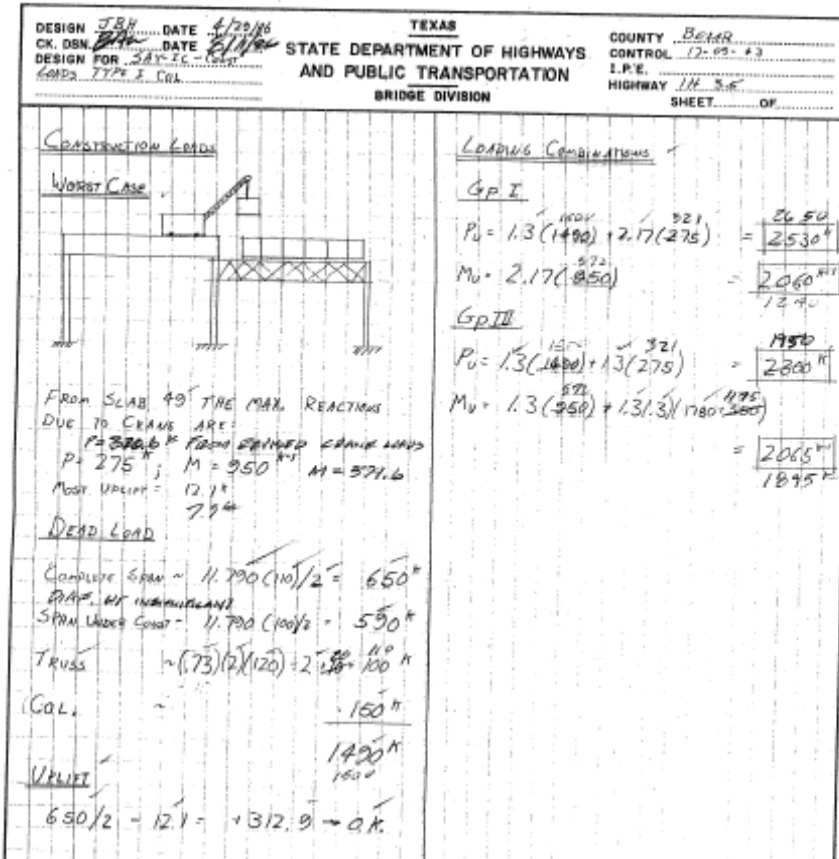 DESIGN JBH DATE 4/29/86
CK. DSN. DATE
DESIGN FOR SAY-IC-CONST
LOADS TYPE I COL
TEXAS
STATE DEPARTMENT OF HIGHWAYS
AND PUBLIC TRANSPORTATION
BRIDGE DIVISION
COUNTY BEXAR
CONTROL
I.P.E.
HIGHWAY IH 35
SHEET OF
CONSTRUCTION LOADS
WORST CASE
FROM SLAB 49 THE MAX. REACTIONS
DUE TO CRANE ARE:
FROM REVISED CRANE LOADS
P = 275 K ; M = 950 K-1 M = 571.6
MOST UPLIFT = 12.1 K
DEAD LOAD
COMPLETE SPAN ~ 11.790 (110)/2 = 650 K
DIAP. WT INSIGNIFICANT
SPAN UNDER CONST - 11.790 (100)/2 = 590 K
TRUSS ~ (.73)(2)(120) ÷ 2 110 100 K
COL. ~ 150 K
1490 K
1500
UPLIFT
650/2 - 12.1 = +312.9 → O.K.
LOADING COMBINATIONS
Gp I
1500 321 2650
Pu = 1.3(1490) + 2.17(275) = 2530 K
572
Mu = 2.17(950) = 2060 K-1
1240
Gp III
321 1950
Pu = 1.3(1490) + 1.3(275) = 2300 K
572 1195
Mu = 1.3(950) + 1.3(.3)(1780
= 2065 K-1
1895 K